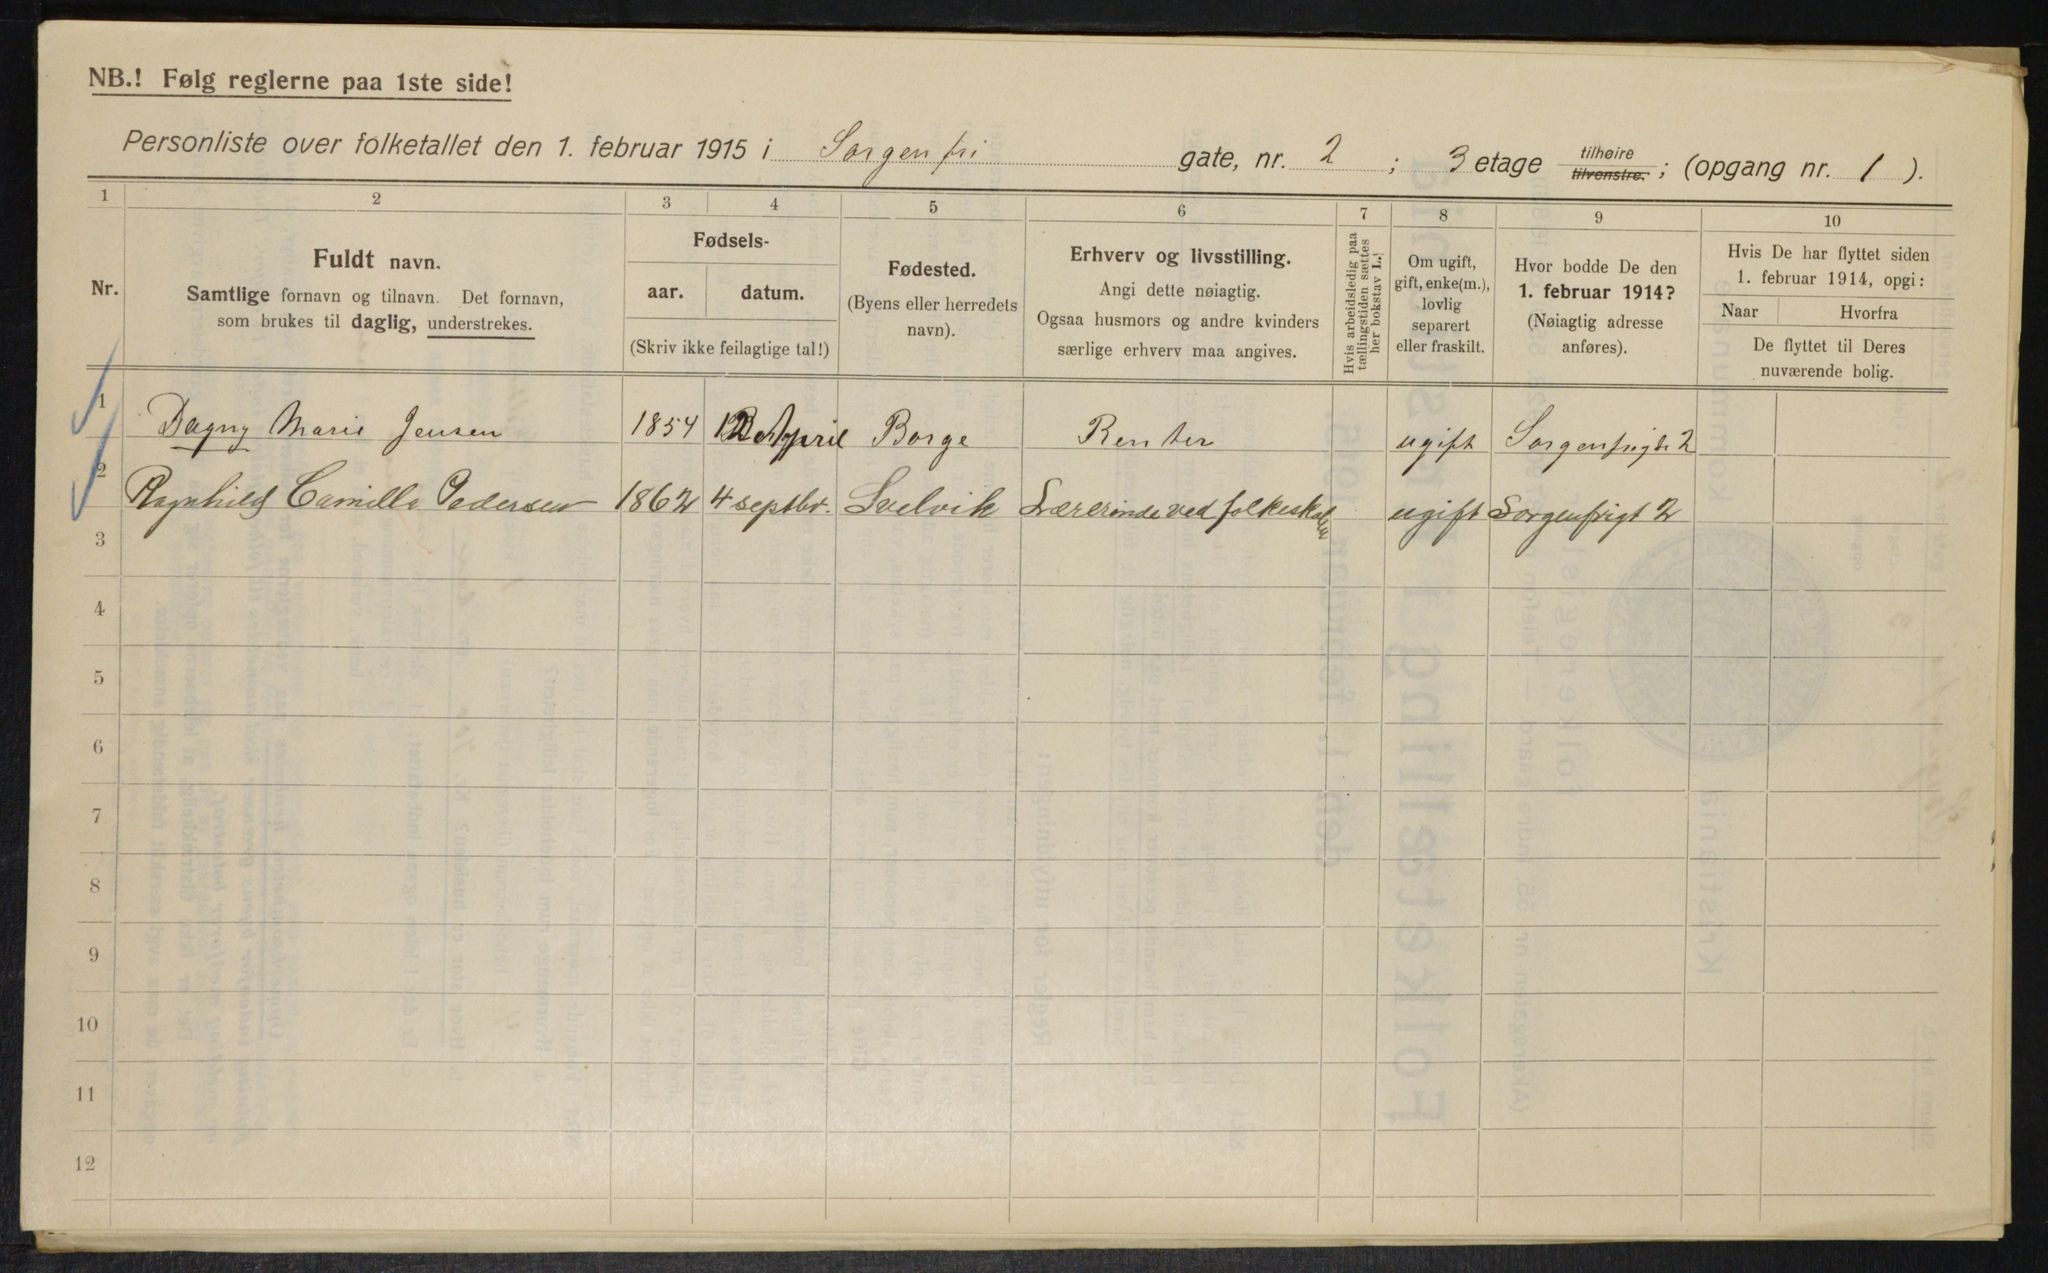 NB.! Følg reglerne paa 1ste side!
Personliste over folketallet den 1. februar 1915 i Sorgenfri gate, nr. 2; 3 etage tilhøire tilvenstre.; (opgang nr. 1).
1 2 3 4 5 6 7 8 9 10
Nr.
Fuldt navn.
Samtlige fornavn og tilnavn. Det fornavn,
som brukes til daglig, understrekes.
Fødsels-
aar. datum.
(Skriv ikke feilagtige tal!)
Fødested.
(Byens eller herredets
navn).
Erhverv og livsstilling.
Angi dette nøiagtig.
Ogsaa husmors og andre kvinders
særlige erhverv maa angives.
Hvis arbeidsledig paa
tællingstiden sættes
her bokstav L.!
Om ugift,
gift, enke(m.),
lovlig
separert
eller fraskilt.
Hvor bodde De den
1. februar 1914?
(Nøiagtig adresse
anføres).
Hvis De har flyttet siden
1. februar 1914, opgi:
Naar Hvorfra
De flyttet til Deres
nuværende bolig.
1 Dagny Marie Jensen 1854 April Borge Renter ugift Sorgenfrigt. 2
2 Ragnhild Camilla Pedersen 1862 4 septbr. Svelvik Lærerinde ved folkeskolen ugift Sorgenfrigt 2
3
4
5
6
7
8
9
10
11
12